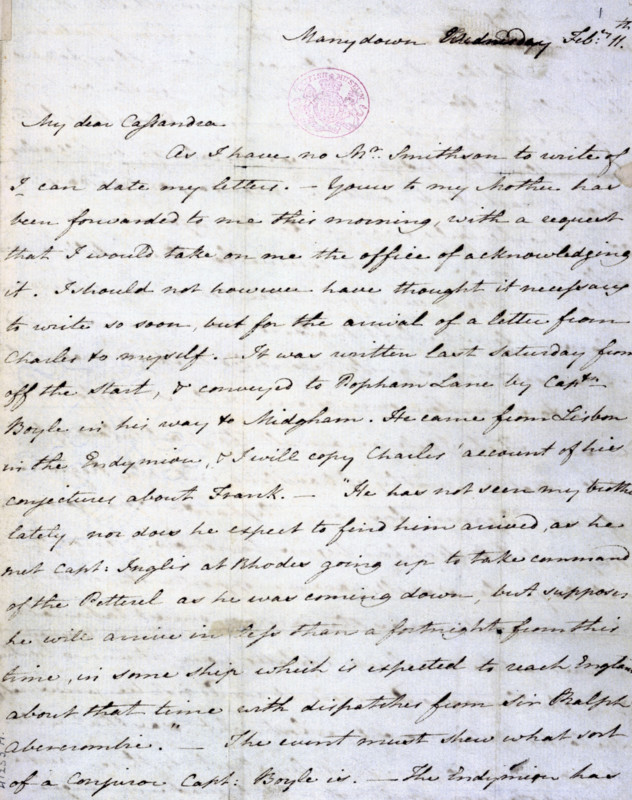 Manydown Wednesday Feb:ry 11th.
BRITISH MUSEUM
My dear Cassandra
As I have no Mr. Smithson to write of
I can date my letters. — Yours to my Mother has
been forwarded to me this morning, with a request
that I would take on me the office of acknowledging
it. I should not however have thought it necessary
to write so soon, but for the arrival of a letter from
Charles to myself. — It was written last Saturday from
off the Start, & conveyed to Popham Lane by Captn
Boyle in his way to Midgham. He came from Lisbon
in the Endymion, & I will copy Charles' account of his
conjectures about Frank. — "He has not seen my brother
lately, nor does he expect to find him arrived, as he
met Capt: Inglis at Rhodes going up to take command
of the Petterel as he was coming down, but supposes
he will arrive in less than a fortnight from this
time, in some ship which is expected to reach England
about that time with dispatches from Sir Ralph
Abercrombie." — The event must shew what sort
of a Conjuror Capt: Boyle is. — The Endymion has